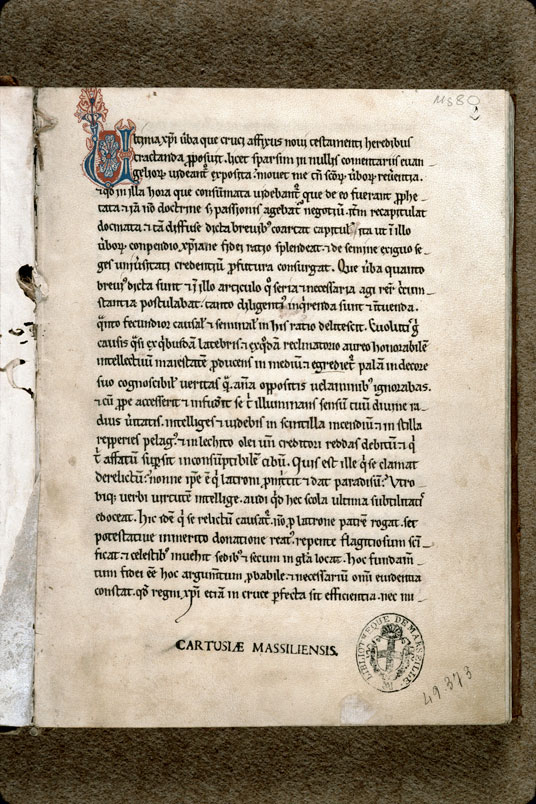 Ms 80
2
Vltima xp̄i u̇ba que cruci affixus noui testamenti heredibus
tractanda ꝓposuit. licet sparsim in nullis comentariis euan-
gelioꝝ uideant᷑ exposita. mouet me tn̄ scōꝝ u̇boꝝ reuerentia.
⁊ qd̓ in illa hora que consūmata uidebant᷑ que de eo fuerant ꝓphe-
tata. ⁊ iā nō doctrine sꝫ passionis agebat᷑ negotiū. itm̄ recapitulat
dogmata. ⁊ tā diffuse dicta breuibꝰ coartat capitulis. ita ut ī illo
u̇boꝝ conpendio xp̄iane fidei ratio splendeat. ⁊ de semine exiguo se-
ges uniuersitati credentiū ꝓfutura consurgat. Que u̇ba quanto
breuiꝰ dicta sunt ⁊ ī illo articulo q̄ seria ⁊ necessaria agi rerū circum-
stantia postulabat. tanto diligentiꝰ inq̄renda sunt ⁊ intuenda.
q̄nto fecundior causalis ⁊ seminalis in his ratio delitescit. Euolutis g̊
causis q̄si ex q̇busdā latebris ⁊ ex q̊dā reclinatorio aureo honorabilē
intellectuū maiestatē ꝓducens in mediū. ⁊ egrediet᷑ palā in decore
suo cognoscibilis ueritas q̄ antea oppositis uelaminibꝰ ignorabas.
⁊ cū ꝓpe accesserit ⁊ infuderit se t̄ illuminans sensū tuū diuine ra-
dius u̇itatis. intelliges ⁊ uidebis in scintilla incendiū. ⁊ in stilla
repperies pelagꝰ. ⁊ in lechito olei uni creditori reddas debitū. ⁊ q̇
t̄ affatū sugesit inconsūptibilē cibū. Quis est ille q̇ se clamat
derelictū. nonne ip̄e ē q̇ latroni ꝓmittit ⁊ dat paradisū. Vtro-
biqꝫ uerbi uirtutē intellige. audi qd̓ hec scola ultima subtilitatis
edoceat. Hic idē q̇ se relictū causat᷑. nō ꝓ latrone patrē rogat. set
potestatiue inmerito donatione reatꝰ repente flagitiosum sc̄i-
ficat. ⁊ celestibꝰ inuehit sedibꝰ ⁊ secum in gl̄a locat. Hoc fundam̄-
tum fidei eē hoc argum̄tum ꝓbabile. ⁊ necessariū omni euidentia
constat. qd̓ regni xp̄i etiā in cruce ꝑfecta sit efficientia. nec mi-
CARTUSIÆ MASSILIENSIS.
BIBLIOTHEQUE DE MARSEILLE
49373